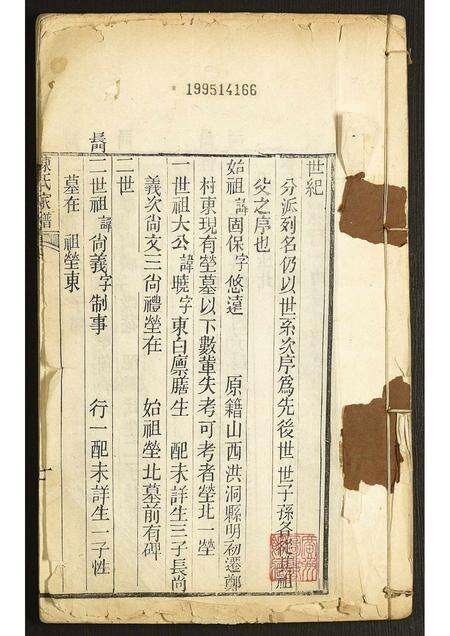 199514166
世紀
分派列名仍以世系次序爲先後世世子孫各從其祖
父之序也
始祖諱固保字悠遠 原籍山西洪洞縣明初遷鄭
村東現有塋墓以下數輩失考可考者塋北一塋
一世祖大公諱曉字東白廪膳生 配未詳生三子長尚
義次尚文三尚禮塋在 始祖塋北墓前有碑
二世
長門
二世祖諱尚義字制事 行一配未詳生一子性
墓在 祖塋東
陳氏家譜
七